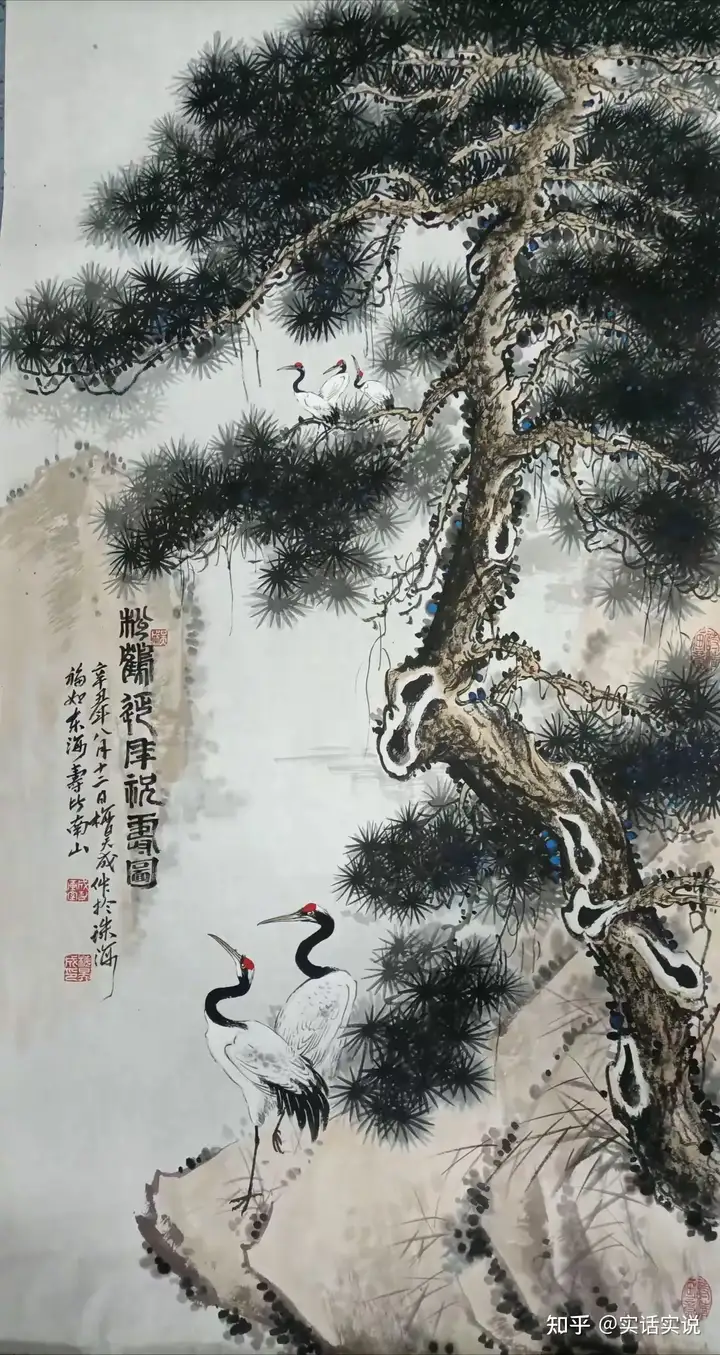 松鶴延年祝壽圖
辛丑年八月十二日作於珠海
福如东海壽比南山
知乎 @实话实说